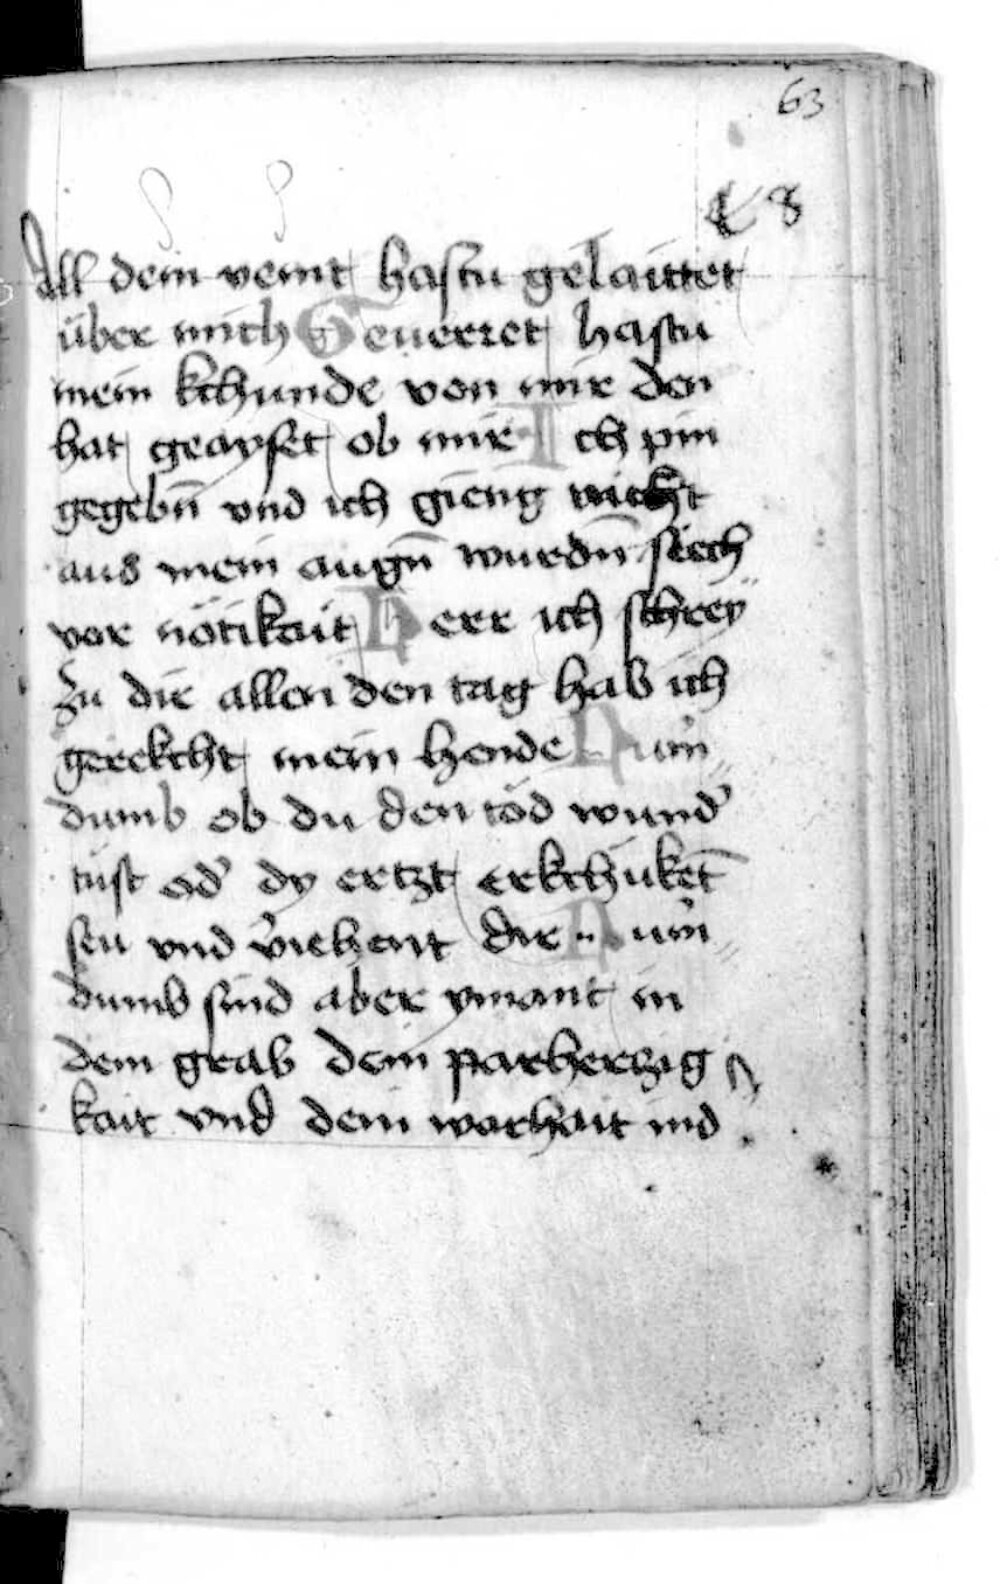 63
All dein veint hastu gelaittet
über mich Geuerret hastu
mein kchunde von mir den
hat geayset ob mir Ich pin
gegebn̄ vnd ich gieng nicht
aus mein augn̄ wurdn̄ siech
vor nötikait Herr ich schrey
zu dir allen den tag hab ich
gerekcht mein hende Num
dumb ob du den töd wund
tust od dy ertzt erkchuket̄
sen vnd viehent dir Num
dumb sind aber ymant in
dem grab dein parhertzig
kait vnd dein warhait ind